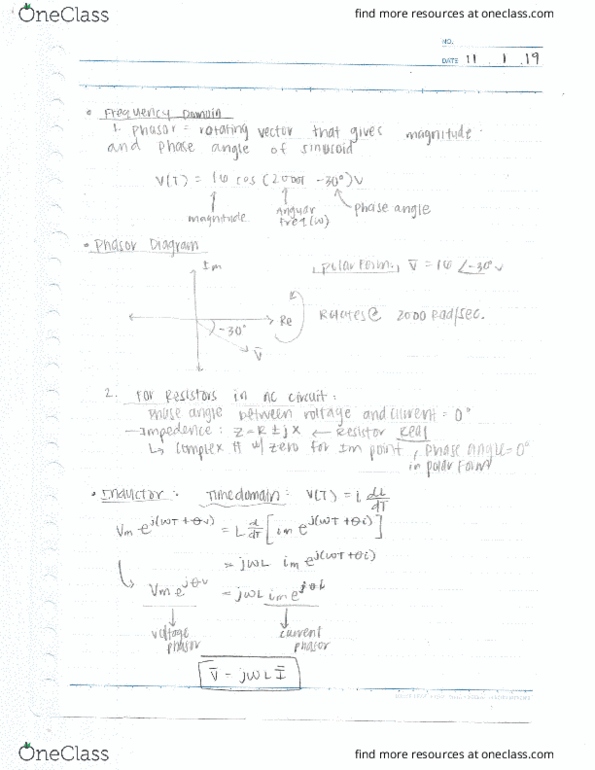 OneClass
find more resources at oneclass.com
NO.
DATE 11 . 1 . 19
• Frequency Domain
1. phasor = rotating vector that gives magnitude
and phase angle of sinusoid
V(T) = 16 cos (2000T -30°)V
magnitude
Angular
Freq (w)
phase angle
• Phasor Diagram
Im
Re
-30°
V̅
polar Form: V̅ = 16 ∠-30° V
Rotates @ 2000 Rad/sec.
2. For Resistors in AC circuit:
Phase angle between voltage and current = 0°
— Impedence: Z = R ± jX ← Resistor Real
↳ complex # w/ zero for Im point, phase angle = 0°
in polar Form
• Inductor: Time domain: V(T) = L di/dT
Vm e^j(wT + θv) = L d/dT [im e^j(wT + θi)]
= jwL im e^j(wT+θi)
Vm e^jθv = jwL im e^jθi
voltage
phasor
current
phasor
V̅ = jwL I̅
OneClass
find more resources at oneclass.com